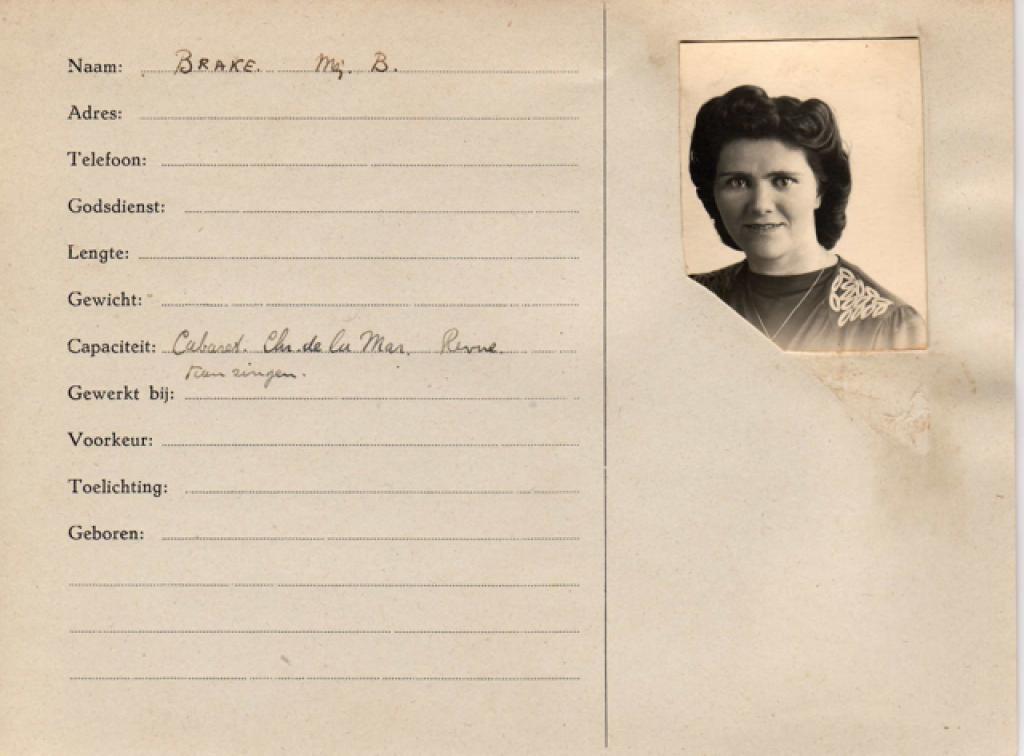 Naam: BRAKE. Mej. B.
Adres:
Telefoon:
Godsdienst:
Lengte:
Gewicht:
Capaciteit: Cabaret. Chr. de la Mar. Revue.
kan zingen.
Gewerkt bij:
Voorkeur:
Toelichting:
Geboren: